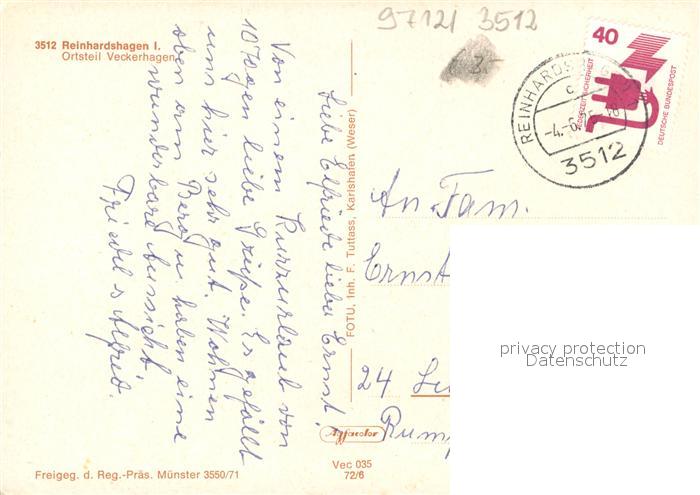 97121 3512
3512 Reinhardshagen I.
Ortsteil Veckerhagen
40
JEDERZEIT SICHERHEIT
DEUTSCHE BUNDESPOST
3512
Liebe Elfriede lieber Ernst!
Von einem Kurzurlaub von
10 Tagen liebe Grüße. Es gefällt
uns hier sehr gut. Wohnen
oben am Berg u. haben eine
wunderbare Aussicht.
Friedel u Alfred.
FOTU, Inh. F. Tuttass, Karlshafen (Weser)
An Fam.
Ernst
24
privacy protection
Datenschutz
Agfacolor
Vec 035
72/6
Freigeg. d. Reg.-Präs. Münster 3550/71